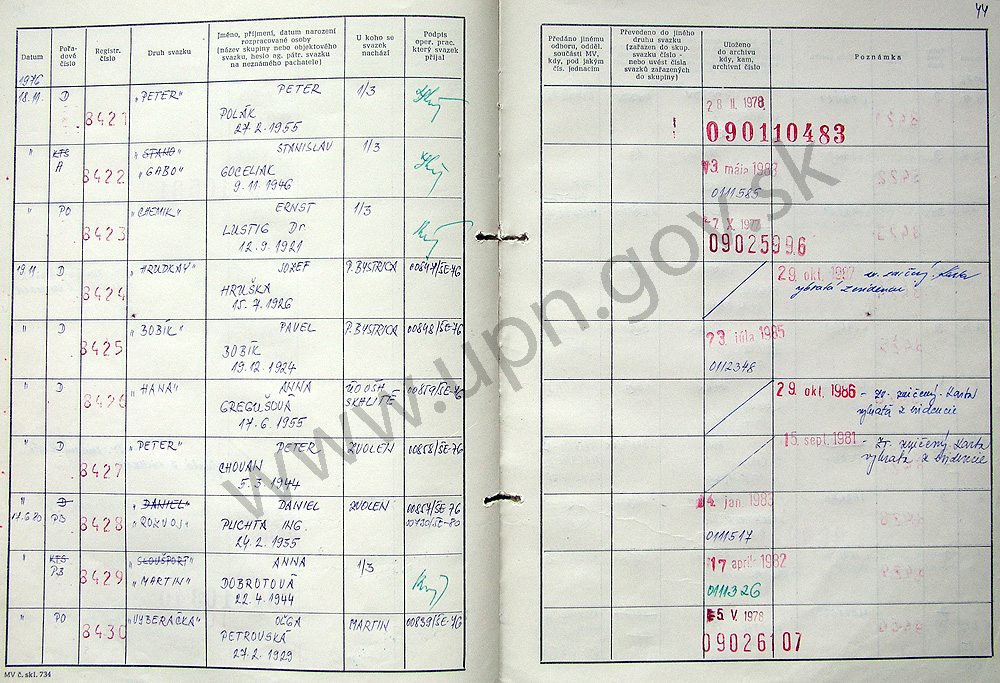 44
Datum
Pořa-
dové
číslo
Registr.
číslo
Druh svazku
Jméno, příjmení, datum narození
rozpracované osoby
(název skupiny nebo objektového
svazku, heslo ag. pátr. svazku
na neznámého pachatele)
U koho se
svazek
nachází
Podpis
oper. prac.
který svazek
přijal
Předáno jinému
odboru, odděl.
součásti MV,
kdy, pod jakým
čís. jednacím
Převedeno do jiného
druhu svazku
(zařazen do skup.
svazku číslo -
nebo uvést čísla
svazků zařazených
do skupiny)
Uloženo
do archivu
kdy, kam,
archivní číslo
Poznámka
1976
18.11. D 8421 "PETER" PETER 1/3
POLÁK
27.2.1955
28 II. 1978
090110483
" KTS 8422 "STANO" STANISLAV 1/3
A "GABO" GOCELIAK
9.11.1946
13 mája 1983
0111585
" PO 8423 "CHEMIK" ERNST 1/3
LUSTIG Dr
12.9.1921
7 X. 1977
09025996
19.11. D 8424 "HRUDKAY" JOZEF P. BYSTRICA 00847/SE-76
HRUŠKA
15.7.1926
29. okt. 1987 zv. zničený. Karta
vybratá z evidencie
" D 8425 "BOBÍK" PAVEL P. BYSTRICA 00848/SE-76
BOBÍK
19.12.1924
23 júla 1985
0112348
" D 8426 "HANA" ANNA ÚO OŠH 00859/SE-76
GREGUŠOVÁ SKALITÉ
17.6.1955
29. okt. 1986 - Zv. zničený. Karta
vybratá z evidencie
" D 8427 "PETER" PETER ZVOLEN 00858/SE-76
CHOVAN
5.3.1944
15. sept. 1981 - Zv. zničený Karta
vybratá z evidencie
" D 8428 "DANIEL" DANIEL ZVOLEN 00857/SE-76
17.6.80 PB "ROZVOJ" PUCHTA ING. 00730/SE-80
24.2.1955
14 jan. 1983
0111517
" KTS 8429 ANNA 1/3
PB "MARTIN" DOBROTOVÁ
22.4.1944
17 apríla 1982
0111326
" PO 8430 "VYBERAČKA" OĽGA MARTIN 00839/SE-76
PETROVSKÁ
27.2.1929
5. V. 1978
09026107
MV č. skl. 734
www.upn.gov.sk